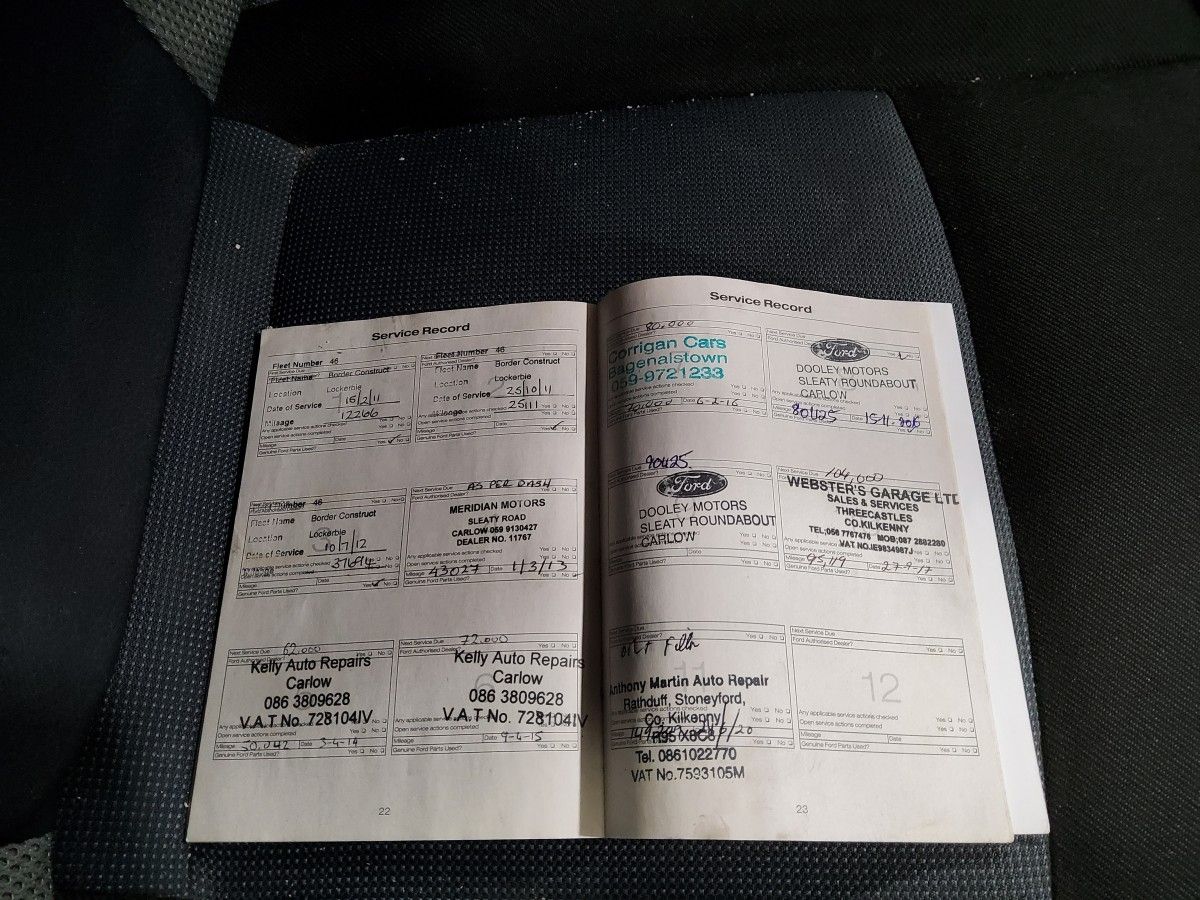 Service Record
Fleet Number 46
Fleet Name Border Construct
Location Lockerbie
Date of Service 15/2/11
Mileage 12266
Any applicable service actions checked Yes No
Open service actions completed Yes No
Mileage Date Yes ✓ No
Genuine Ford Parts Used?
Fleet Number 46
Fleet Name Border Construct
Location Lockerbie
Date of Service 25/10/11
Mileage 25111
Open service actions completed Yes No
Mileage Date Yes ✓ No
Genuine Ford Parts Used?
Fleet Number 46
Fleet Name Border Construct
Location Lockerbie
Date of Service 10/7/12
37694
Open service actions completed Yes No
Mileage Date Yes ✓ No
Genuine Ford Parts Used?
Next Service Due AS PER DASH
Ford Authorised Dealer? Yes No
MERIDIAN MOTORS
SLEATY ROAD
CARLOW 059 9130427
DEALER NO. 11767
Any applicable service actions checked Yes No
Open service actions completed Yes No
Mileage 43027 Date 1/3/13
Genuine Ford Parts Used? Yes No
Next Service Due 62.000
Kelly Auto Repairs
Carlow
086 3809628
V.A.T No. 728104IV
Open service actions completed Yes No
Mileage 50.042 Date 3-4-14
Genuine Ford Parts Used? Yes No
Next Service Due 72.000
Kelly Auto Repairs
Carlow
086 3809628
V.A.T No. 728104IV
Open service actions completed Yes No
Mileage Date 9-4-15
Genuine Ford Parts Used? Yes No
22
Service Record
80.000
Corrigan Cars
Bagenalstown
059-9721233
service actions checked Yes No
actions completed Yes No
70,000 Date 6-2-16
Yes No
Next Service Due
Ford Authorised Dealer? Yes No
Ford
DOOLEY MOTORS
SLEATY ROUNDABOUT
CARLOW
Mileage 80425 Date
Genuine Ford Parts Used? Yes No
Next Service Due 90425
Ford
DOOLEY MOTORS
SLEATY ROUNDABOUT
CARLOW
Date
Genuine Ford Parts Used? Yes No
Next Service Due 104,000
WEBSTER'S GARAGE LTD
SALES & SERVICES
THREECASTLES
CO.KILKENNY
TEL;056 7767476 MOB;087 2882280
VAT NO.IE9834987J
Open service actions completed Yes No
Mileage 95,119 Date 27-9-17
Genuine Ford Parts Used? Yes No
Anthony Martin Auto Repair
Rathduff, Stoneyford,
Co. Kilkenny
R95 X8C8
Tel. 0861022770
VAT No.7593105M
Next Service Due
Ford Authorised Dealer? Yes No
12
Any applicable service actions checked Yes No
Open service actions completed Yes No
Mileage Date
Genuine Ford Parts Used? Yes No
23